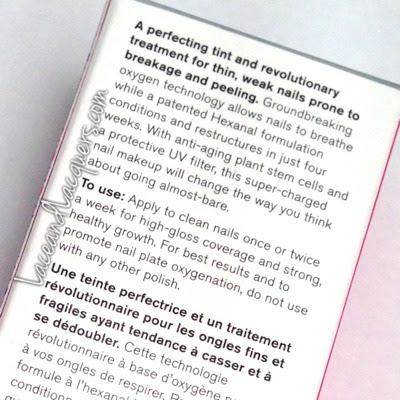 A perfecting tint and revolutionary
treatment for thin, weak nails prone to
breakage and peeling. Groundbreaking
oxygen technology allows nails to breathe
while a patented Hexanal formulation
conditions and restructures in just four
weeks. With anti-aging plant stem cells and
a protective UV filter, this super-charged
nail makeup will change the way you think
about going almost-bare.
To use: Apply to clean nails once or twice
a week for high-gloss coverage and strong,
healthy growth. For best results and to
promote nail plate oxygenation, do not use
with any other polish.
Une teinte perfectrice et un traitement
révolutionnaire pour les ongles fins et
fragiles ayant tendance à casser et à
se dédoubler. Cette technologie
révolutionnaire à base d'oxygène
à vos ongles de respirer.
formule à l'hexanal
LaceandLacquers.com